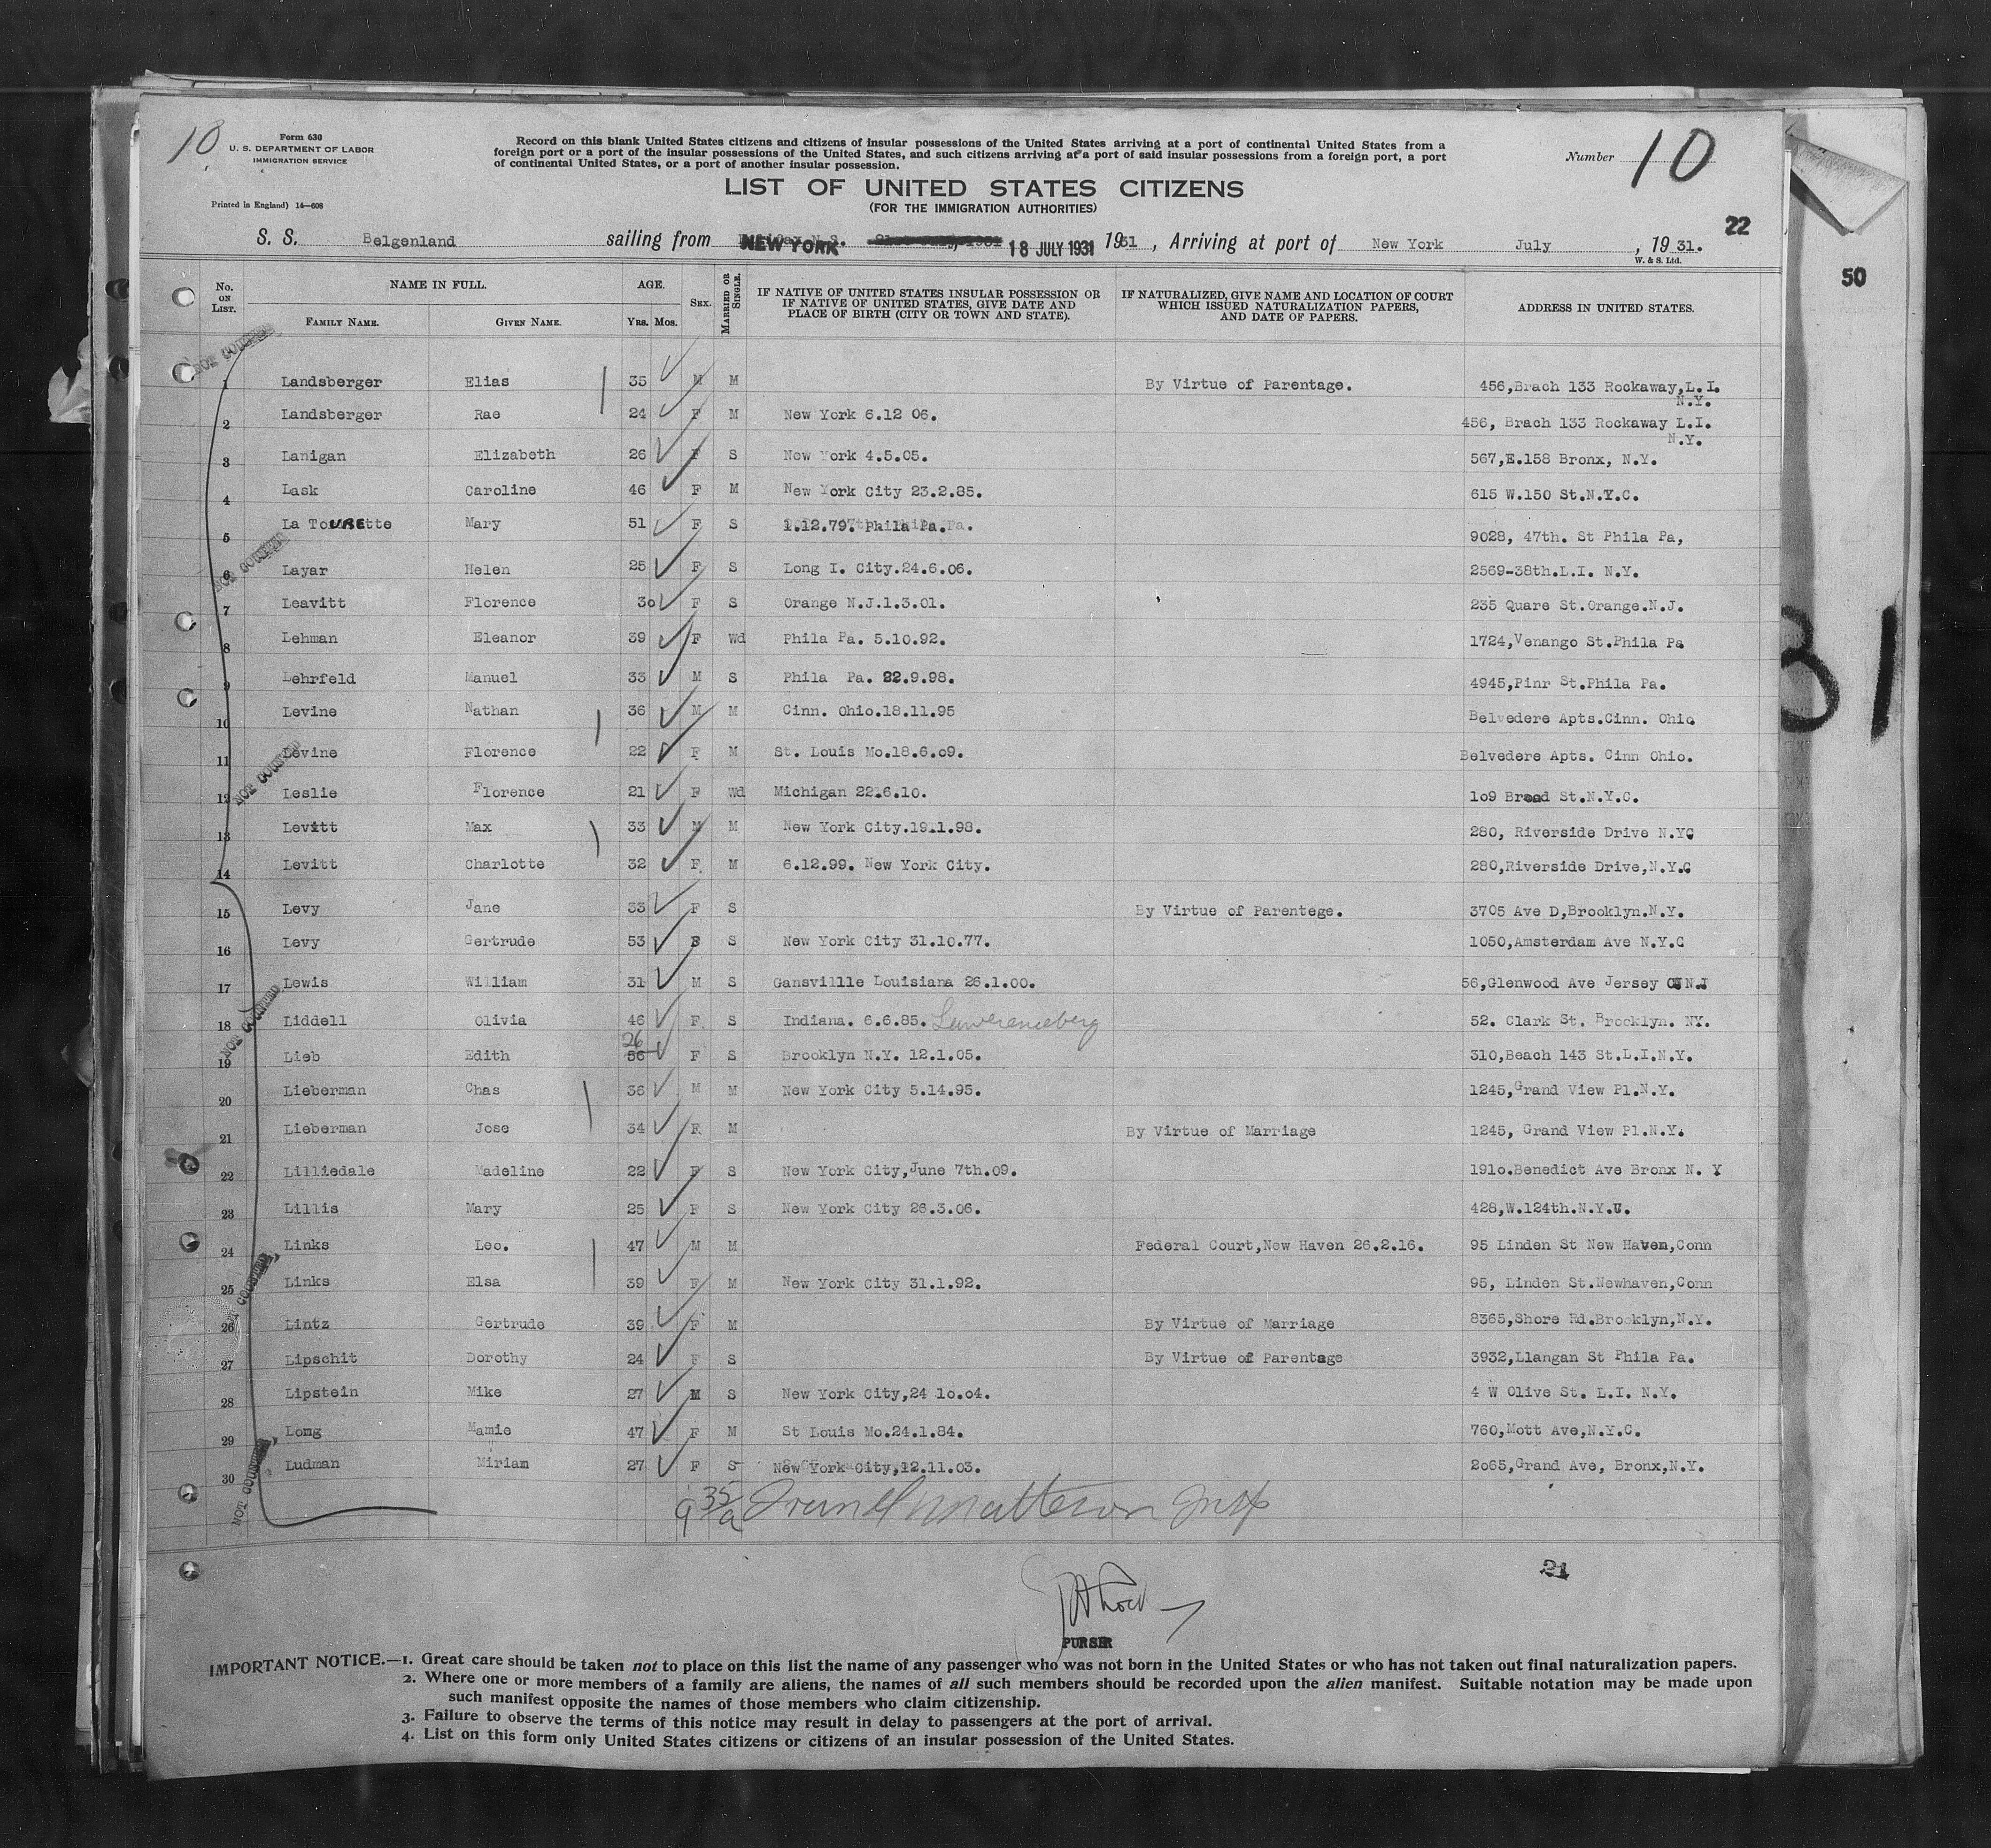 10
Form 630
U. S. DEPARTMENT OF LABOR
IMMIGRATION SERVICE
Printed in England) 14—608
Record on this blank United States citizens and citizens of insular possessions of the United States arriving at a port of continental United States from a
foreign port or a port of the insular possessions of the United States, and such citizens arriving at a port of said insular possessions from a foreign port, a port
of continental United States, or a port of another insular possession.
Number 10
LIST OF UNITED STATES CITIZENS
(FOR THE IMMIGRATION AUTHORITIES)
22
S. S. Belgenland sailing from NEW YORK 18 JULY 1931 1931, Arriving at port of New York July, 1931.
W. & S. Ltd.
50
No. ON LIST. NAME IN FULL. AGE. SEX. MARRIED OR SINGLE. IF NATIVE OF UNITED STATES INSULAR POSSESSION OR IF NATIVE OF UNITED STATES, GIVE DATE AND PLACE OF BIRTH (CITY OR TOWN AND STATE). IF NATURALIZED, GIVE NAME AND LOCATION OF COURT WHICH ISSUED NATURALIZATION PAPERS, AND DATE OF PAPERS. ADDRESS IN UNITED STATES.
FAMILY NAME. GIVEN NAME. YRS. MOS.
NOT COUNTED
1 Landsberger Elias 35 M M By Virtue of Parentage. 456,Brach 133 Rockaway,L.I.
N.Y.
2 Landsberger Rae 24 F M New York 6.12 06. 456, Brach 133 Rockaway L.I.
N.Y.
3 Lanigan Elizabeth 26 F S New York 4.5.05. 567,E.158 Bronx, N.Y.
4 Lask Caroline 46 F M New York City 23.2.85. 615 W.150 St.N.Y.C.
5 La ToUREtte Mary 51 F S 1.12.79. Phila Pa. 9028, 47th. St Phila Pa,
NOT COUNTED
6 Layar Helen 25 F S Long I. City.24.6.06. 2569-38th.L.I. N.Y.
7 Leavitt Florence 30 F S Orange N.J.1.3.01. 235 Quare St.Orange.N.J.
8 Lehman Eleanor 39 F Wd Phila Pa. 5.10.92. 1724,Venango St.Phila Pa
9 Lehrfeld Manuel 33 M S Phila Pa. 22.9.98. 4945,Pinr St.Phila Pa.
10 Levine Nathan 36 M M Cinn. Ohio.18.11.95 Belvedere Apts.Cinn. Ohio
11 Levine Florence 22 F M St. Louis Mo.18.6.09. Belvedere Apts. Cinn Ohio.
NOT COUNTED
12 Leslie Florence 21 F Wd Michigan 22.6.10. 109 Broad St.N.Y.C.
13 Levitt Max 33 M M New York City.19.1.98. 280, Riverside Drive N.YC
14 Levitt Charlotte 32 F M 6.12.99. New York City. 280,Riverside Drive,N.Y.C
15 Levy Jane 33 F S By Virtue of Parentege. 3705 Ave D,Brooklyn.N.Y.
16 Levy Gertrude 53 F S New York City 31.10.77. 1050,Amsterdam Ave N.Y.C
17 Lewis William 31 M S Gansvillle Louisiana 26.1.00. 56,Glenwood Ave Jersey C N.J
NOT COUNTED
18 Liddell Olivia 46 F S Indiana. 6.6.85. Lawerenceberg 52. Clark St. Brooklyn. NY.
26
19 Lieb Edith 56 F S Brooklyn N.Y. 12.1.05. 310,Beach 143 St.L.I.N.Y.
20 Lieberman Chas 36 M M New York City 5.14.95. 1245,Grand View Pl.N.Y.
21 Lieberman Jose 34 F M By Virtue of Marriage 1245, Grand View Pl.N.Y.
22 Lilliedale Madeline 22 F S New York City,June 7th.09. 1910.Benedict Ave Bronx N. Y
23 Lillis Mary 25 F S New York City 26.3.06. 428,W.124th.N.Y.
24 Links Leo. 47 M M Federal Court,New Haven 26.2.16. 95 Linden St New Haven,Conn
25 Links Elsa 39 F M New York City 31.1.92. 95, Linden St.Newhaven,Conn
NOT COUNTED
26 Lintz Gertrude 39 F M By Virtue of Marriage 8365,Shore Rd.Brooklyn,N.Y.
27 Lipschit Dorothy 24 F S By Virtue of Parentage 3932,Llangan St Phila Pa.
28 Lipstein Mike 27 M S New York City,24 10.04. 4 W Olive St. L.I. N.Y.
29 Long Mamie 47 F M St Louis Mo.24.1.84. 760,Mott Ave,N.Y.C.
30 Ludman Miriam 27 F S New York City,12.11.03. 2065,Grand Ave, Bronx,N.Y.
NOT COUNTED
9 35/a Matteson Insp
21
PURSER
IMPORTANT NOTICE.—1. Great care should be taken not to place on this list the name of any passenger who was not born in the United States or who has not taken out final naturalization papers.
2. Where one or more members of a family are aliens, the names of all such members should be recorded upon the alien manifest. Suitable notation may be made upon
such manifest opposite the names of those members who claim citizenship.
3. Failure to observe the terms of this notice may result in delay to passengers at the port of arrival.
4. List on this form only United States citizens or citizens of an insular possession of the United States.